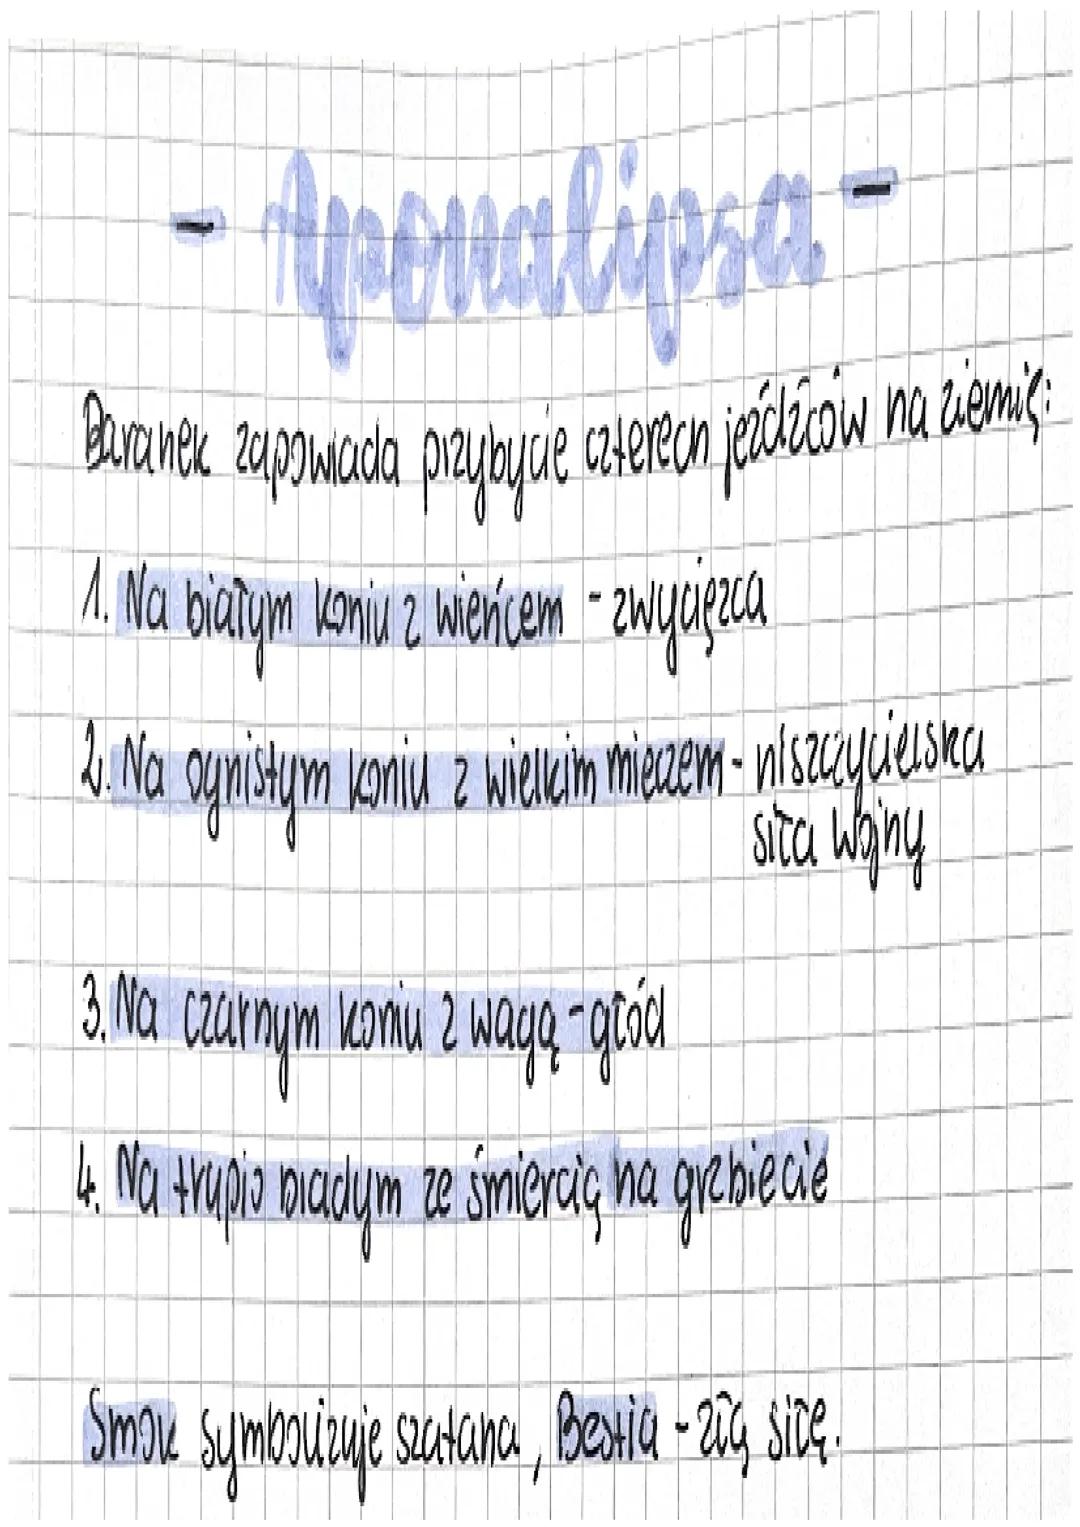 - Apokalipsa -
Baranek zapowiada przybycie czterech jeźdźców na ziemię:
1. Na białym koniu z wieńcem - zwycięzca
2. Na ognistym koniu z wielkim mieczem - niszczycielska
siła wojny
3. Na czarnym koniu z wagą - głód
4. Na trupio bladym ze śmiercią na grzbiecie
Smok symbolizuje szatana, Bestia - złą siłę.